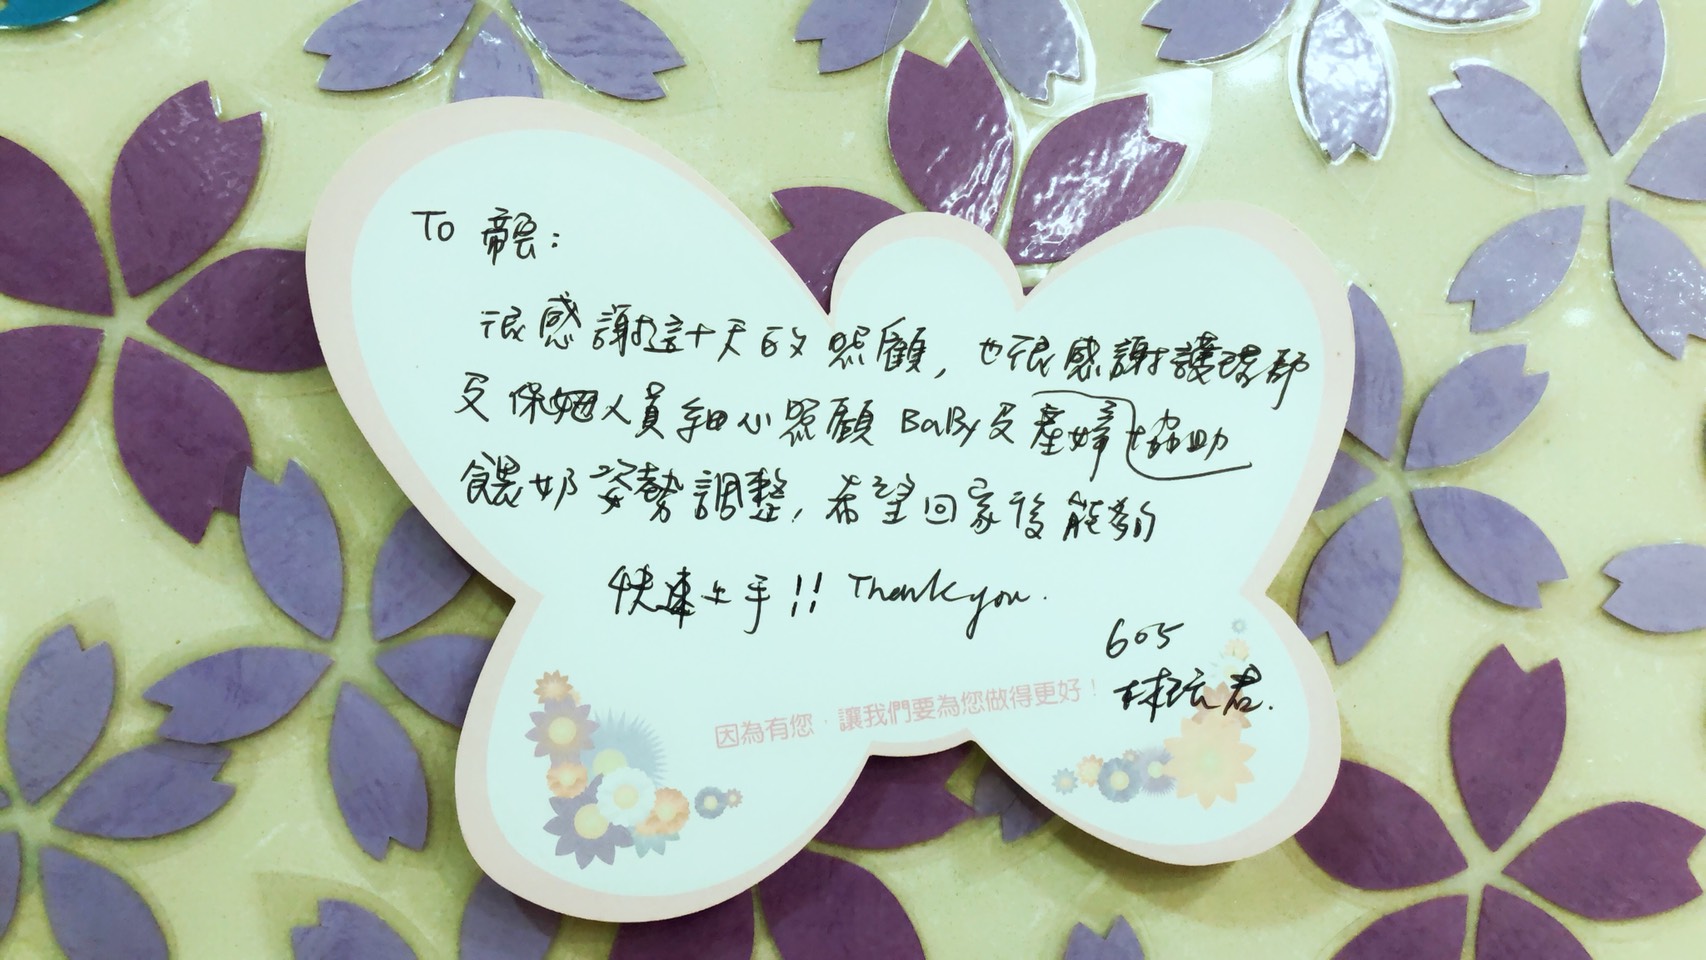 To 帝君:
很感謝這十天的照顧, 也很感謝護理部
及保姆人員細心照顧 BaBy及產婦協助
餵奶姿勢調整, 希望回家後能夠
快速上手!! Thank you.
605
林玹君.
因為有您，讓我們要為您做得更好！